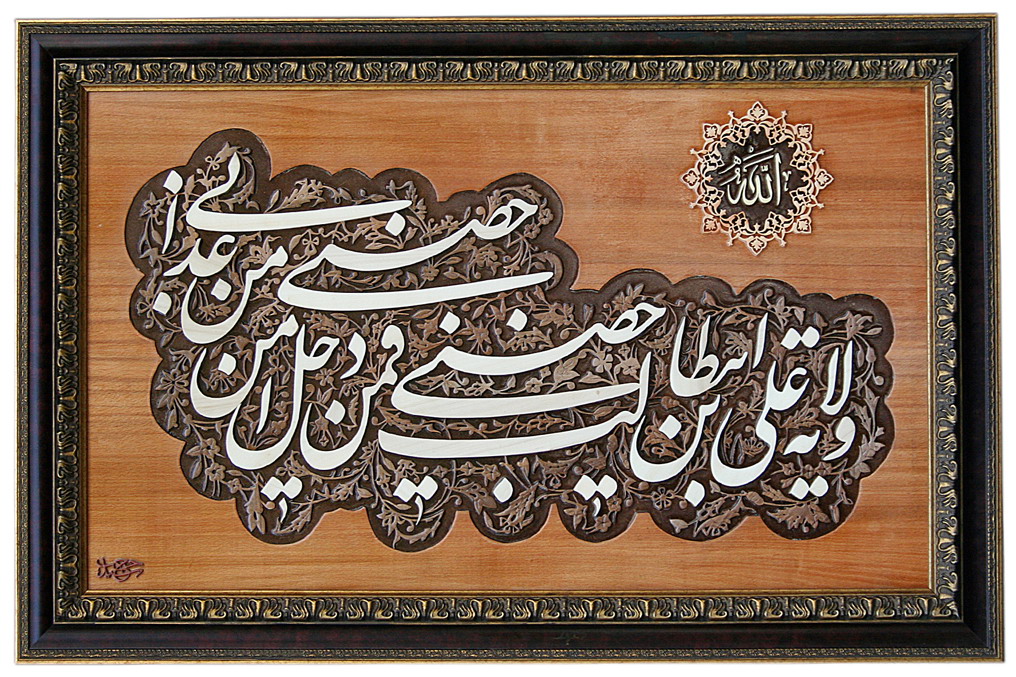 الله
ولایة علی ابن ابیطالب حصنی
فمن دخل حصنی امن من عذابی